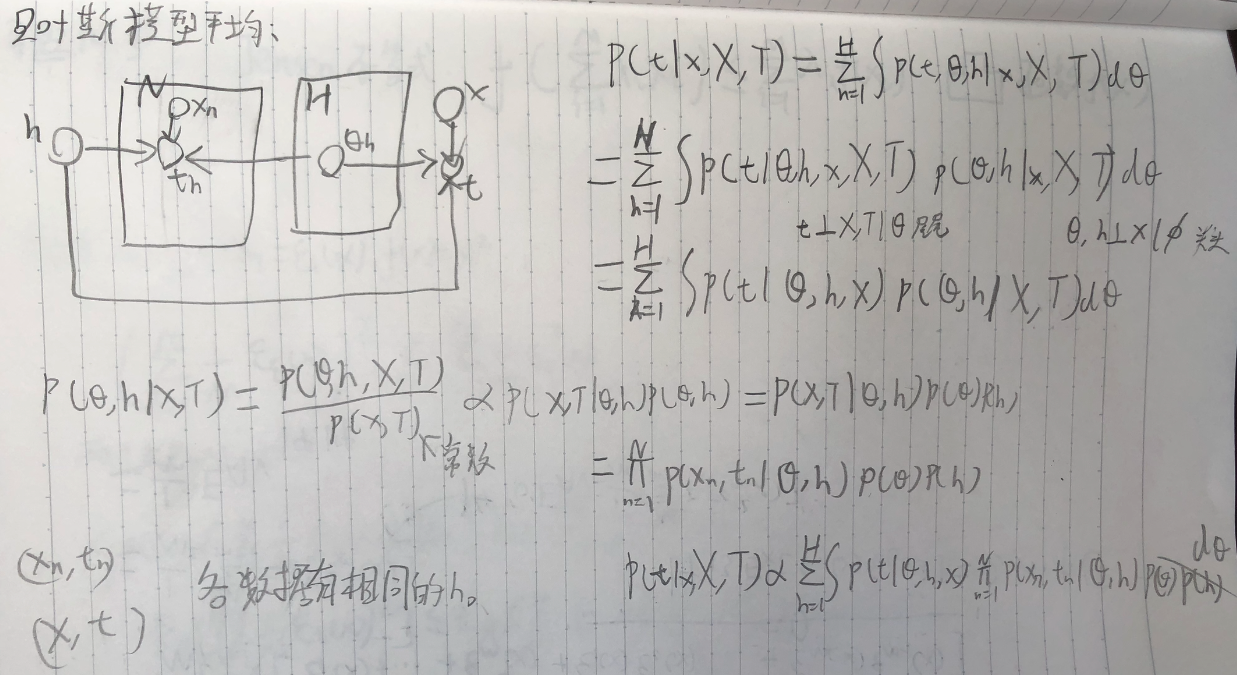 贝叶斯模型平均:
N H
h xₙ tₙ θₕ x t
P(t|x,X,T) = Σ_{h=1}^{H} ∫ p(t,θ,h|x,X,T)dθ
= Σ_{h=1}^{H} ∫ p(t|θ,h,x,X,T) p(θ,h|x,X,T)dθ
t⊥X,T|θ 尾尾 θ,h⊥x|ϕ 头头
= Σ_{h=1}^{H} ∫ p(t|θ,h,x) p(θ,h|X,T)dθ
P(θ,h|X,T) = p(θ,h,X,T) / p(X,T) ∝ p(X,T|θ,h)p(θ,h) = p(X,T|θ,h)p(θ)p(h)
常数
= ∏_{n=1}^{N} p(xₙ,tₙ|θ,h) p(θ)p(h)
(xₙ,tₙ) 各数据有相同的h。
(x,t)
p(t|x,X,T) ∝ Σ_{h=1}^{H} ∫ p(t|θ,h,x) ∏_{n=1}^{N} p(xₙ,tₙ|θ,h) p(θ) p(h) dθ